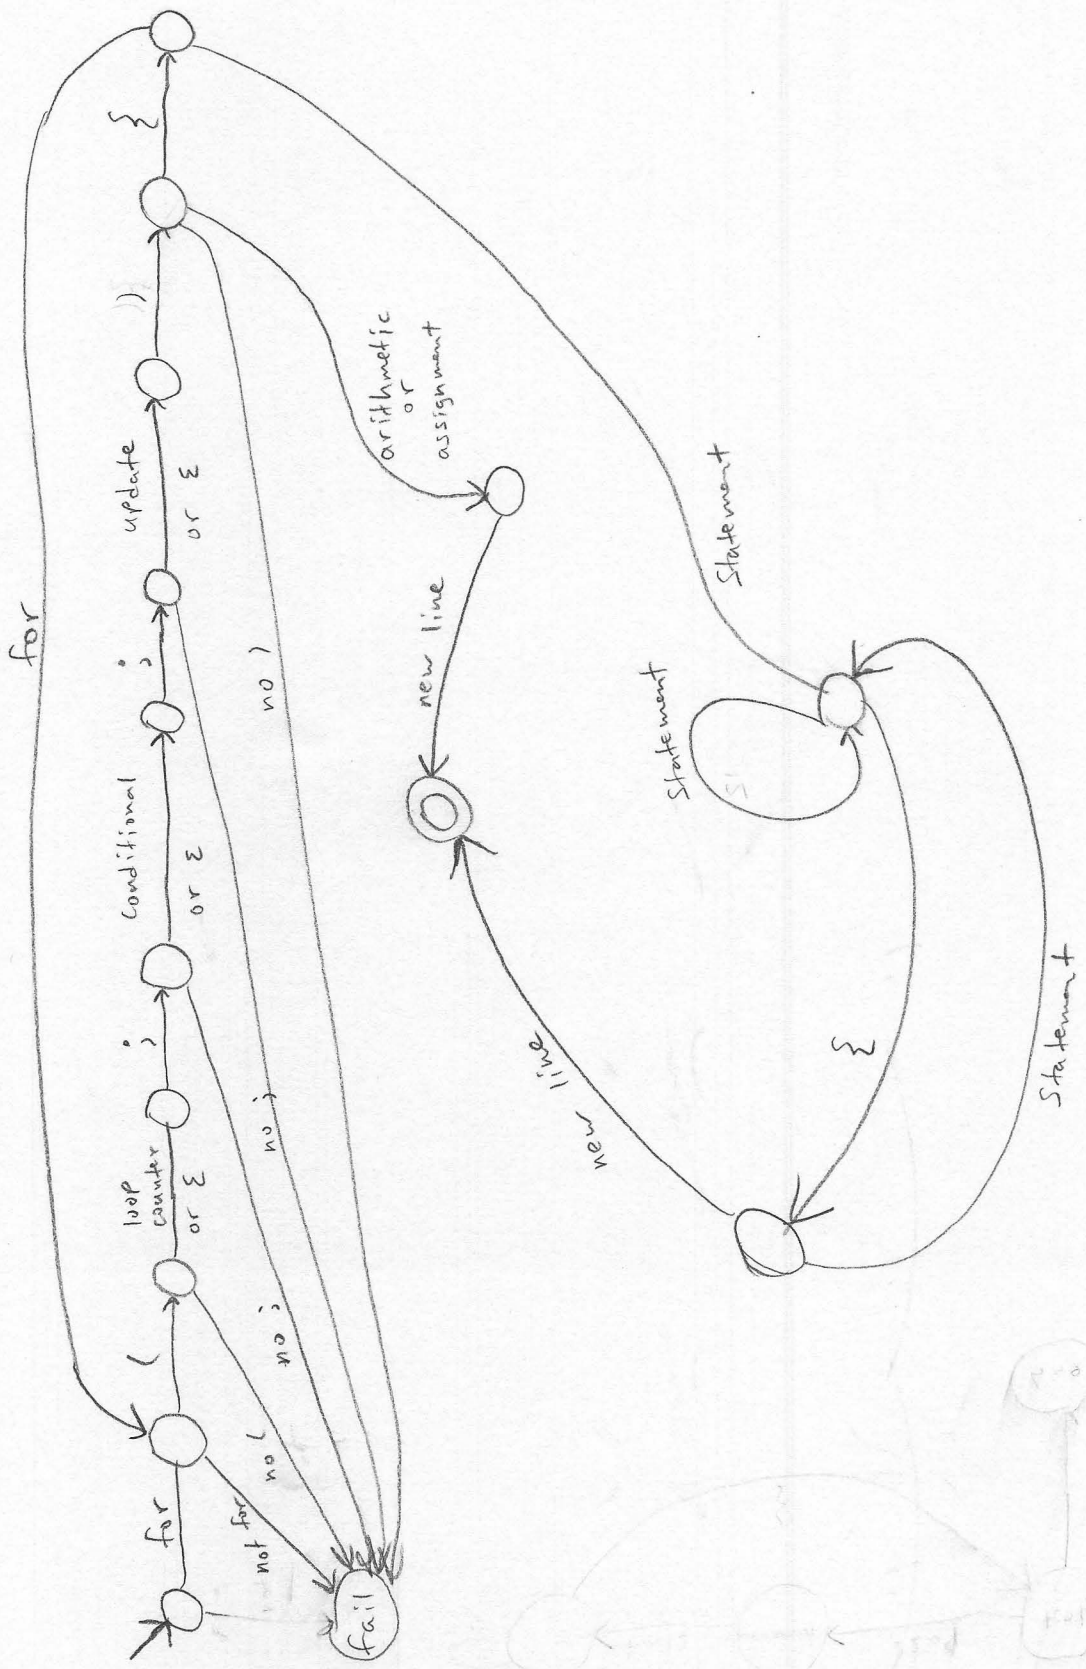 for
for
(
loop
counter
or ε
;
conditional
or ε
;
update
or ε
)
}
not for
no (
no ;
no ;
no )
fail
arithmetic
or
assignment
new line
new line
Statement
Statement
}
Statement